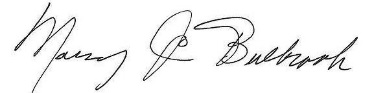 Marcy J. Bulbrook